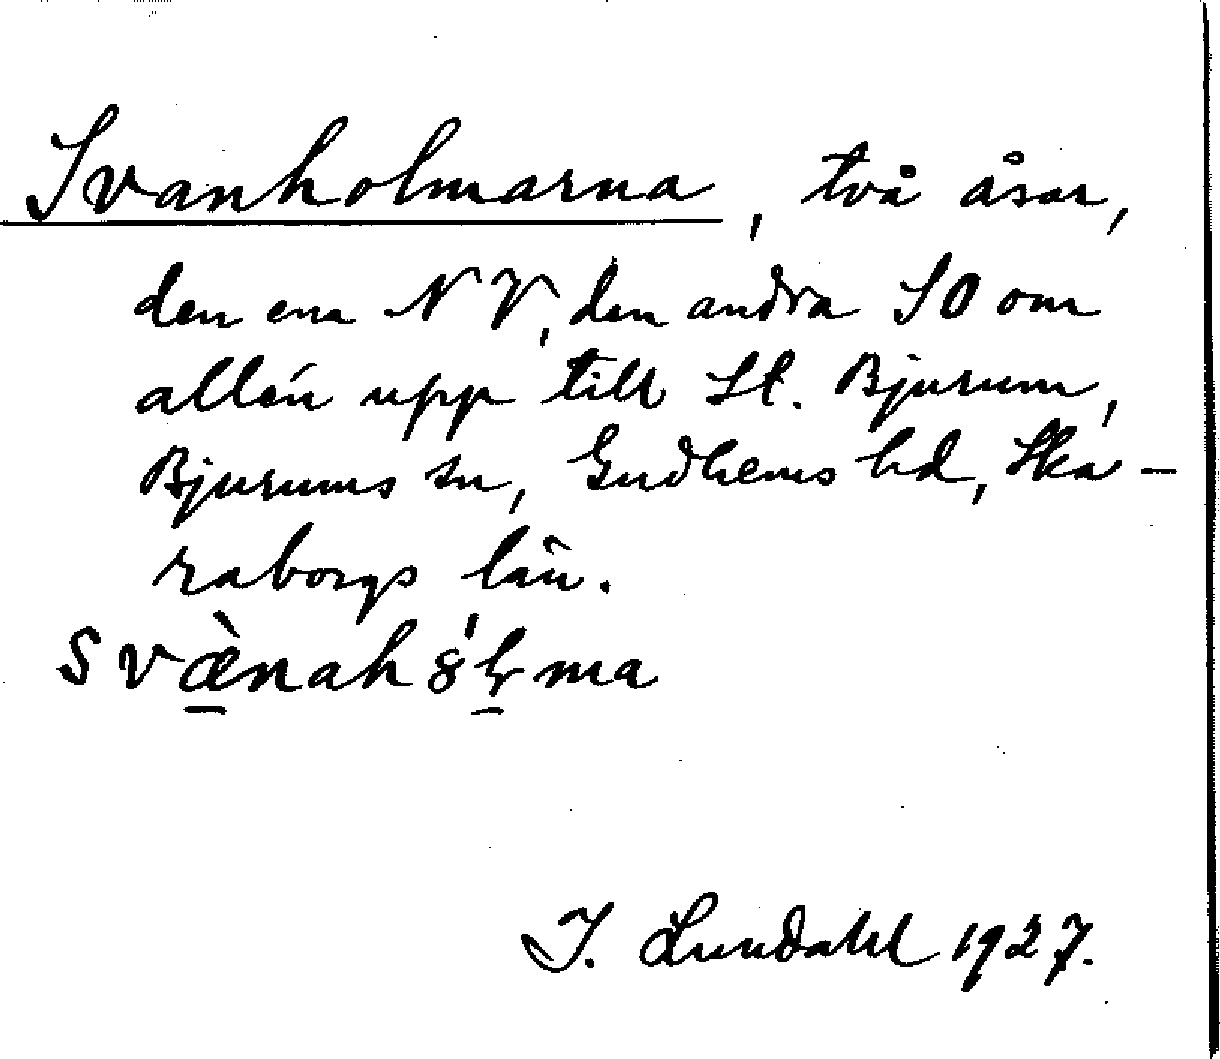 Svanholmarna, två åsar,
den ena NV, den andra SO om
allén upp till St. Bjurum,
Bjurums sn, Gudhems hd, Ska-
raborgs län.
I. Lundahl 1927.